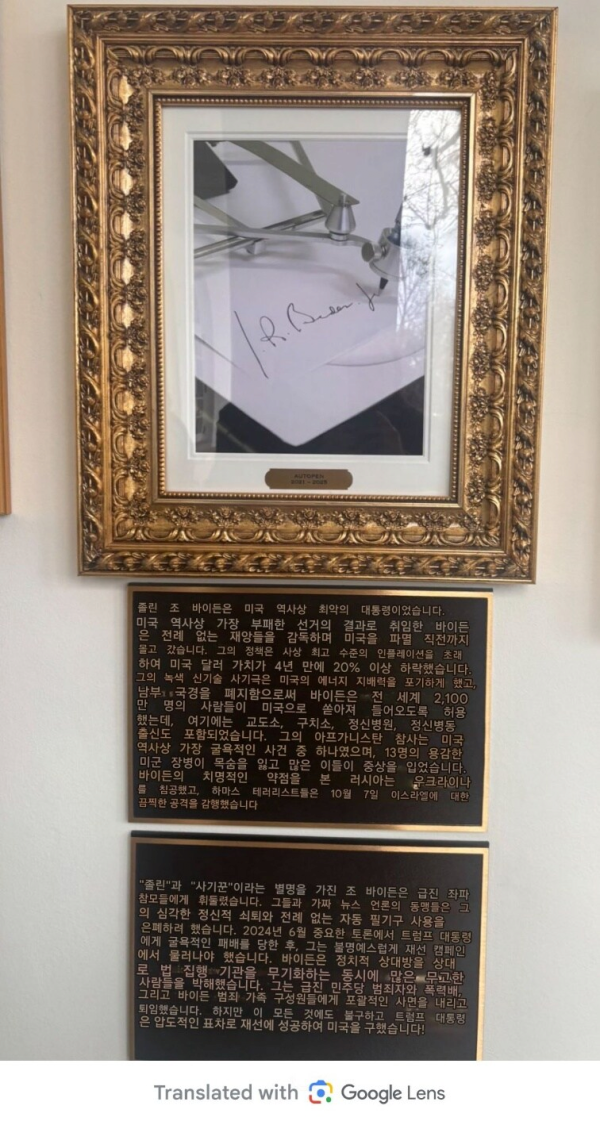 J. R. Biden. Jr
AUTOPEN
2021 - 2025
졸린 조 바이든은 미국 역사상 최악의 대통령이었습니다.
미국 역사상 가장 부패한 선거의 결과로 취임한 바이든
은 전례 없는 재앙들을 감독하며 미국을 파멸 직전까지
몰고 갔습니다. 그의 정책은 사상 최고 수준의 인플레이션을 초래
하여 미국 달러 가치가 4년 만에 20% 이상 하락했습니다.
그의 녹색 신기술 사기극은 미국의 에너지 지배력을 포기하게 했고,
남부 국경을 폐지함으로써 바이든은 전 세계 2,100
만 명의 사람들이 미국으로 쏟아져 들어오도록 허용
했는데, 여기에는 교도소, 구치소, 정신병원, 정신병동
출신도 포함되었습니다. 그의 아프가니스탄 참사는 미국
역사상 가장 굴욕적인 사건 중 하나였으며, 13명의 용감한
미군 장병이 목숨을 잃고 많은 이들이 중상을 입었습니다.
바이든의 치명적인 약점을 본 러시아는 우크라이나
를 침공했고, 하마스 테러리스트들은 10월 7일 이스라엘에 대한
끔찍한 공격을 감행했습니다
"졸린"과 "사기꾼"이라는 별명을 가진 조 바이든은 급진 좌파
참모들에게 휘둘렸습니다. 그들과 가짜 뉴스 언론의 동맹들은 그
의 심각한 정신적 쇠퇴와 전례 없는 자동 필기구 사용을
은폐하려 했습니다. 2024년 6월 중요한 토론에서 트럼프 대통령
에게 굴욕적인 패배를 당한 후, 그는 불명예스럽게 재선 캠페인
에서 물러나야 했습니다. 바이든은 정치적 상대방을 상대
로 법 집행 기관을 무기화하는 동시에 많은 무고한
사람들을 박해했습니다. 그는 급진 민주당 범죄자와 폭력배,
그리고 바이든 범죄 가족 구성원들에게 포괄적인 사면을 내리고
퇴임했습니다. 하지만 이 모든 것에도 불구하고 트럼프 대통령
은 압도적인 표차로 재선에 성공하여 미국을 구했습니다!
Translated with Google Lens